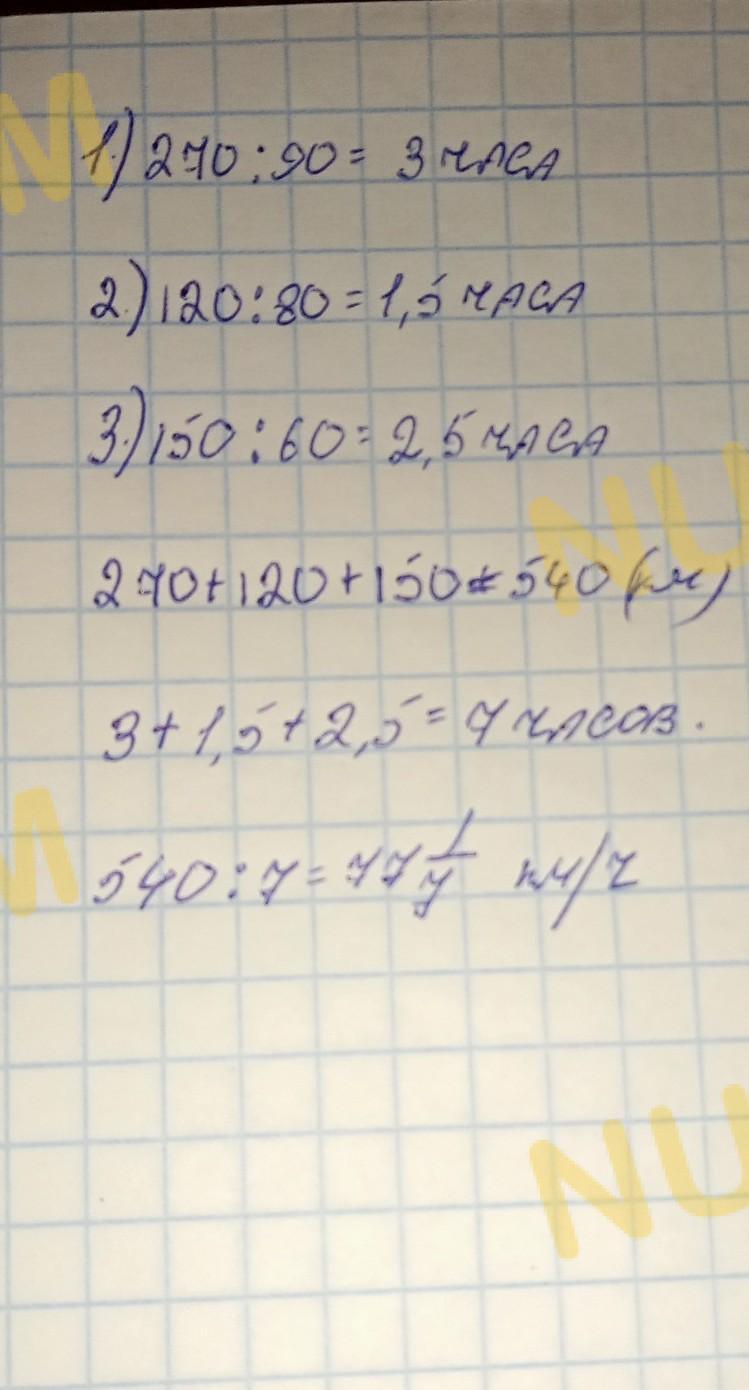 M
1.) 270 : 90 = 3 часа
2.) 120 : 80 = 1,5 часа
3.) 150 : 60 = 2,5 часа
NU
270 + 120 + 150 = 540 (км)
3 + 1,5 + 2,5 = 7 часов.
M
540 : 7 = 77 1/7 км/ч
NU